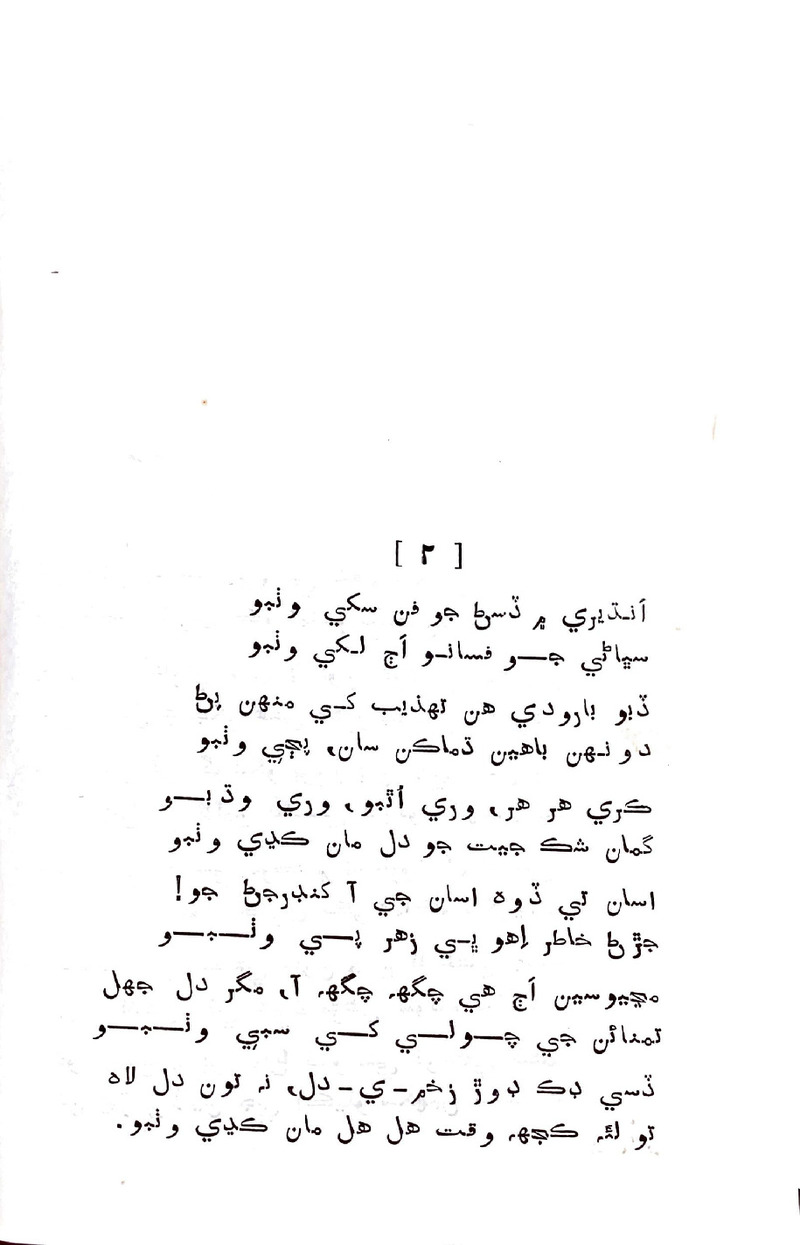 [ ۲ ]
اَنڌيري ۾ ڏسڻ جو فن سکي وٺبو
سڀاڻي جو فسانو اَڄ لکي وٺبو
ڏبو بارودي هن تهذيب کي منهن پڻ
دونهن باهين ڌماڪن سان، پچي وٺبو
ڪري هر هر، وري اُٿبو، وري وڌبو
گمان شڪ جيت جو دل مان ڪڍي وٺبو
اسان تي ڏوهه اسان جي آ کنڊرجڻ جو!
جڙڻ خاطر اِهو ڀي زهر پي وٺبو
مڃيوسين اَڄ هي چڱهه چڱهه آ، مگر دل جهل
تمنائن جي چولي کي سبي وٺبو
ڏسي ڊڪ ڊوڙ زخم-ي-دل، نہ تون دل لاهه
تو لئه ڪجهه وقت هل هل مان ڪڍي وٺبو.